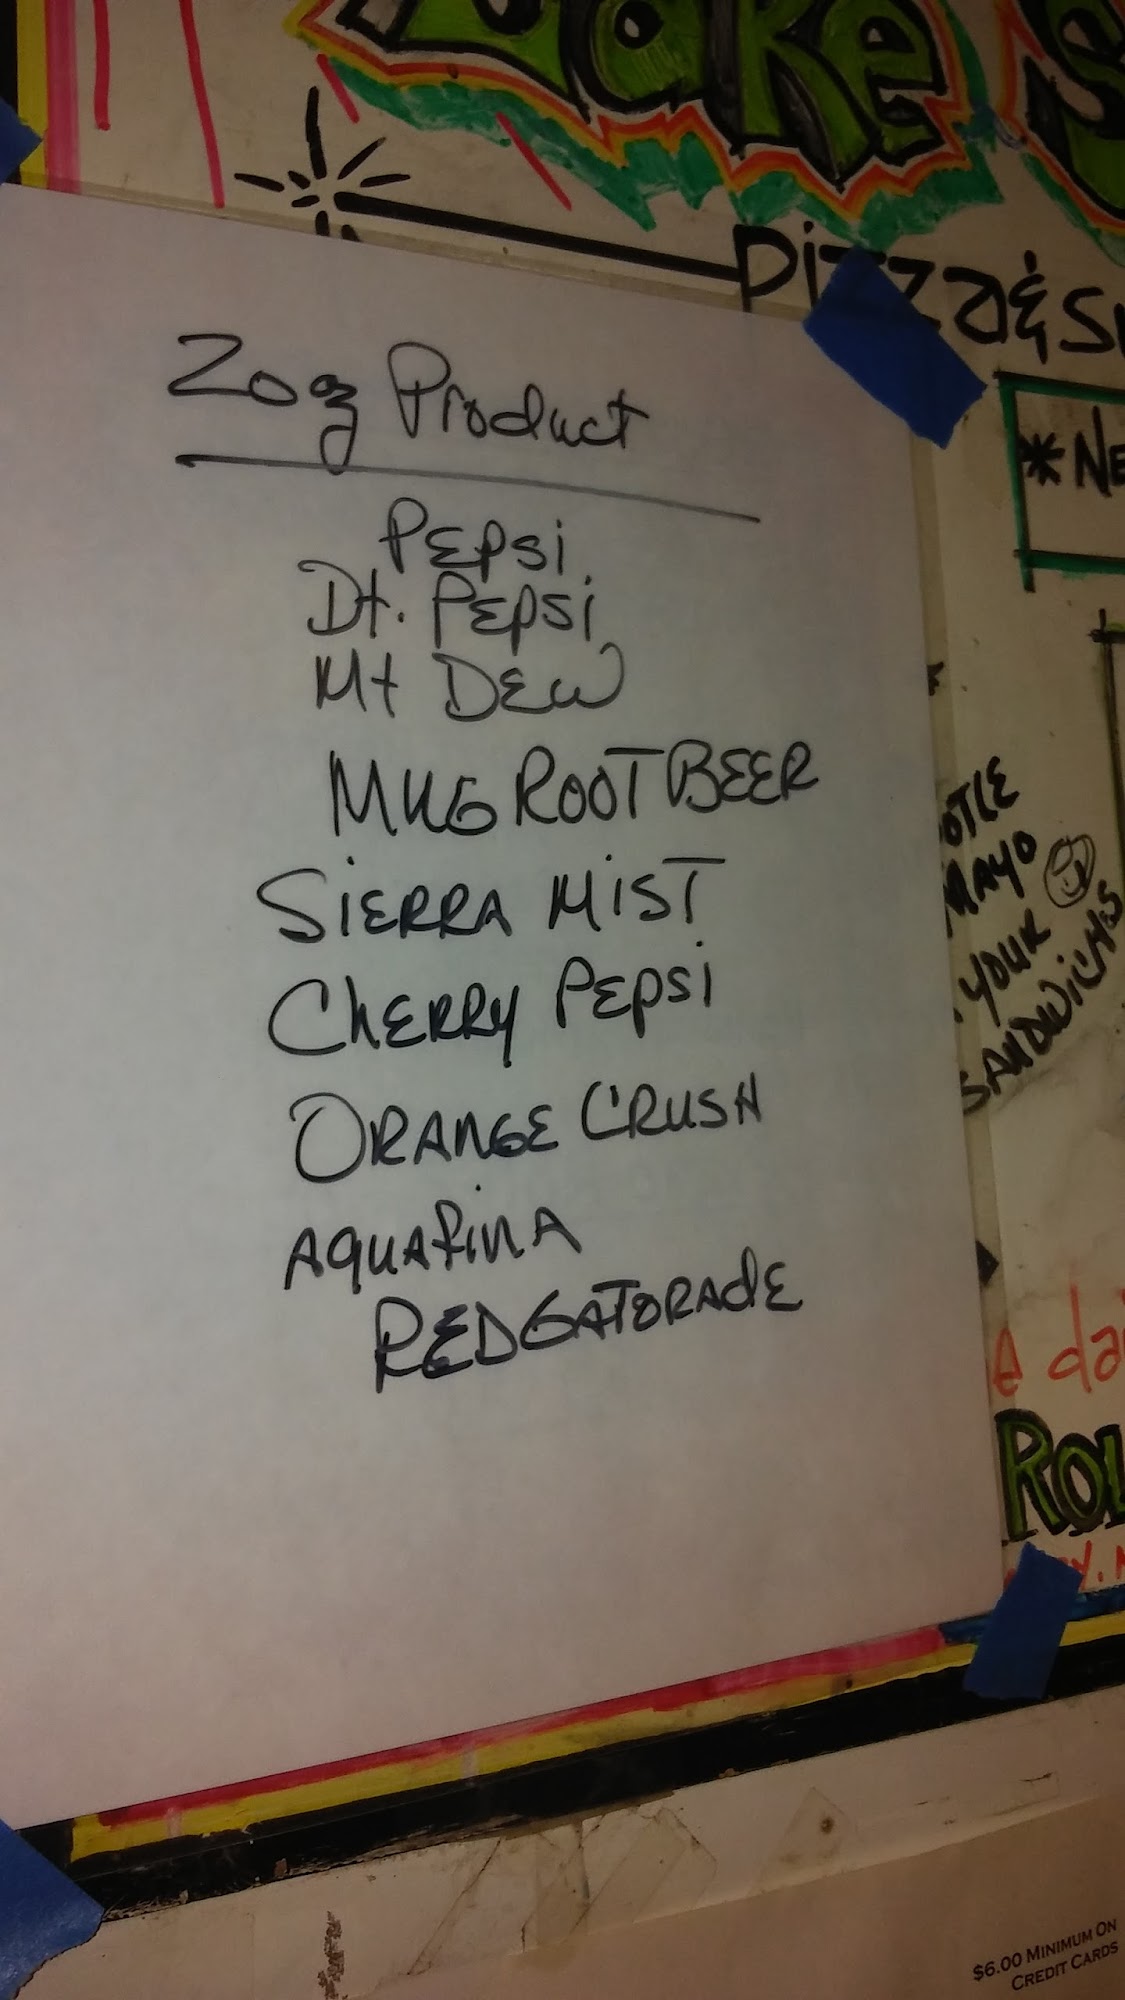 Lake S
Pizza & S
20oz Product
Pepsi
Dt. Pepsi
Mt Dew
Mug Root Beer
Sierra Mist
Cherry Pepsi
Orange Crush
Aquafina
Red Gatorade
* Ne
otle
Mayo
your
Sandwichs
e da
Rol
y.
$6.00 Minimum On
Credit Cards